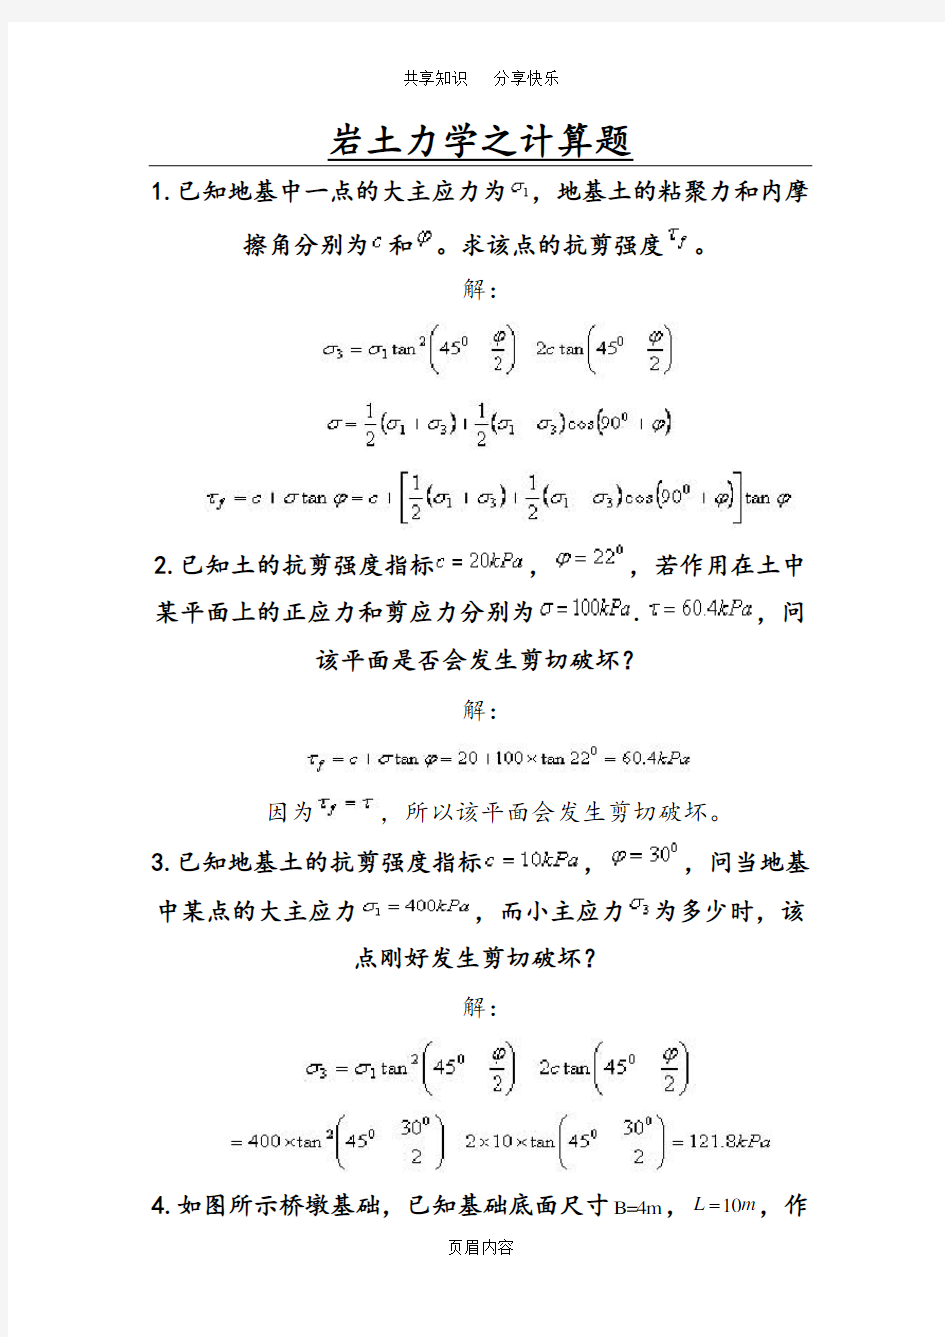 共享知识 分享快乐
岩土力学之计算题
1.已知地基中一点的大主应力为σ₁，地基土的粘聚力和内摩
擦角分别为c和φ。求该点的抗剪强度τ_f。
解：
σ₃ = σ₁ tan²(45⁰ φ/2) 2c tan(45⁰ φ/2)
σ = 1/2(σ₁ + σ₃) + 1/2(σ₁ σ₃)cos(90⁰ + φ)
τ_f = c + σ tan φ = c + [1/2(σ₁ + σ₃) + 1/2(σ₁ σ₃)cos(90⁰ + φ)] tan φ
2.已知土的抗剪强度指标c = 20kPa，φ = 22⁰，若作用在土中
某平面上的正应力和剪应力分别为σ = 100kPa.τ = 60.4kPa，问
该平面是否会发生剪切破坏？
解：
τ_f = c + σ tan φ = 20 + 100 × tan 22⁰ = 60.4kPa
因为τ_f = τ，所以该平面会发生剪切破坏。
3.已知地基土的抗剪强度指标c = 10kPa，φ = 30⁰，问当地基
中某点的大主应力σ₁ = 400kPa，而小主应力σ₃为多少时，该
点刚好发生剪切破坏？
解：
σ₃ = σ₁ tan²(45⁰ φ/2) 2c tan(45⁰ φ/2)
= 400 × tan²(45⁰ 30⁰/2) 2 × 10 × tan(45⁰ 30⁰/2) = 121.8kPa
4.如图所示桥墩基础，已知基础底面尺寸B=4m，L = 10m，作
页眉内容